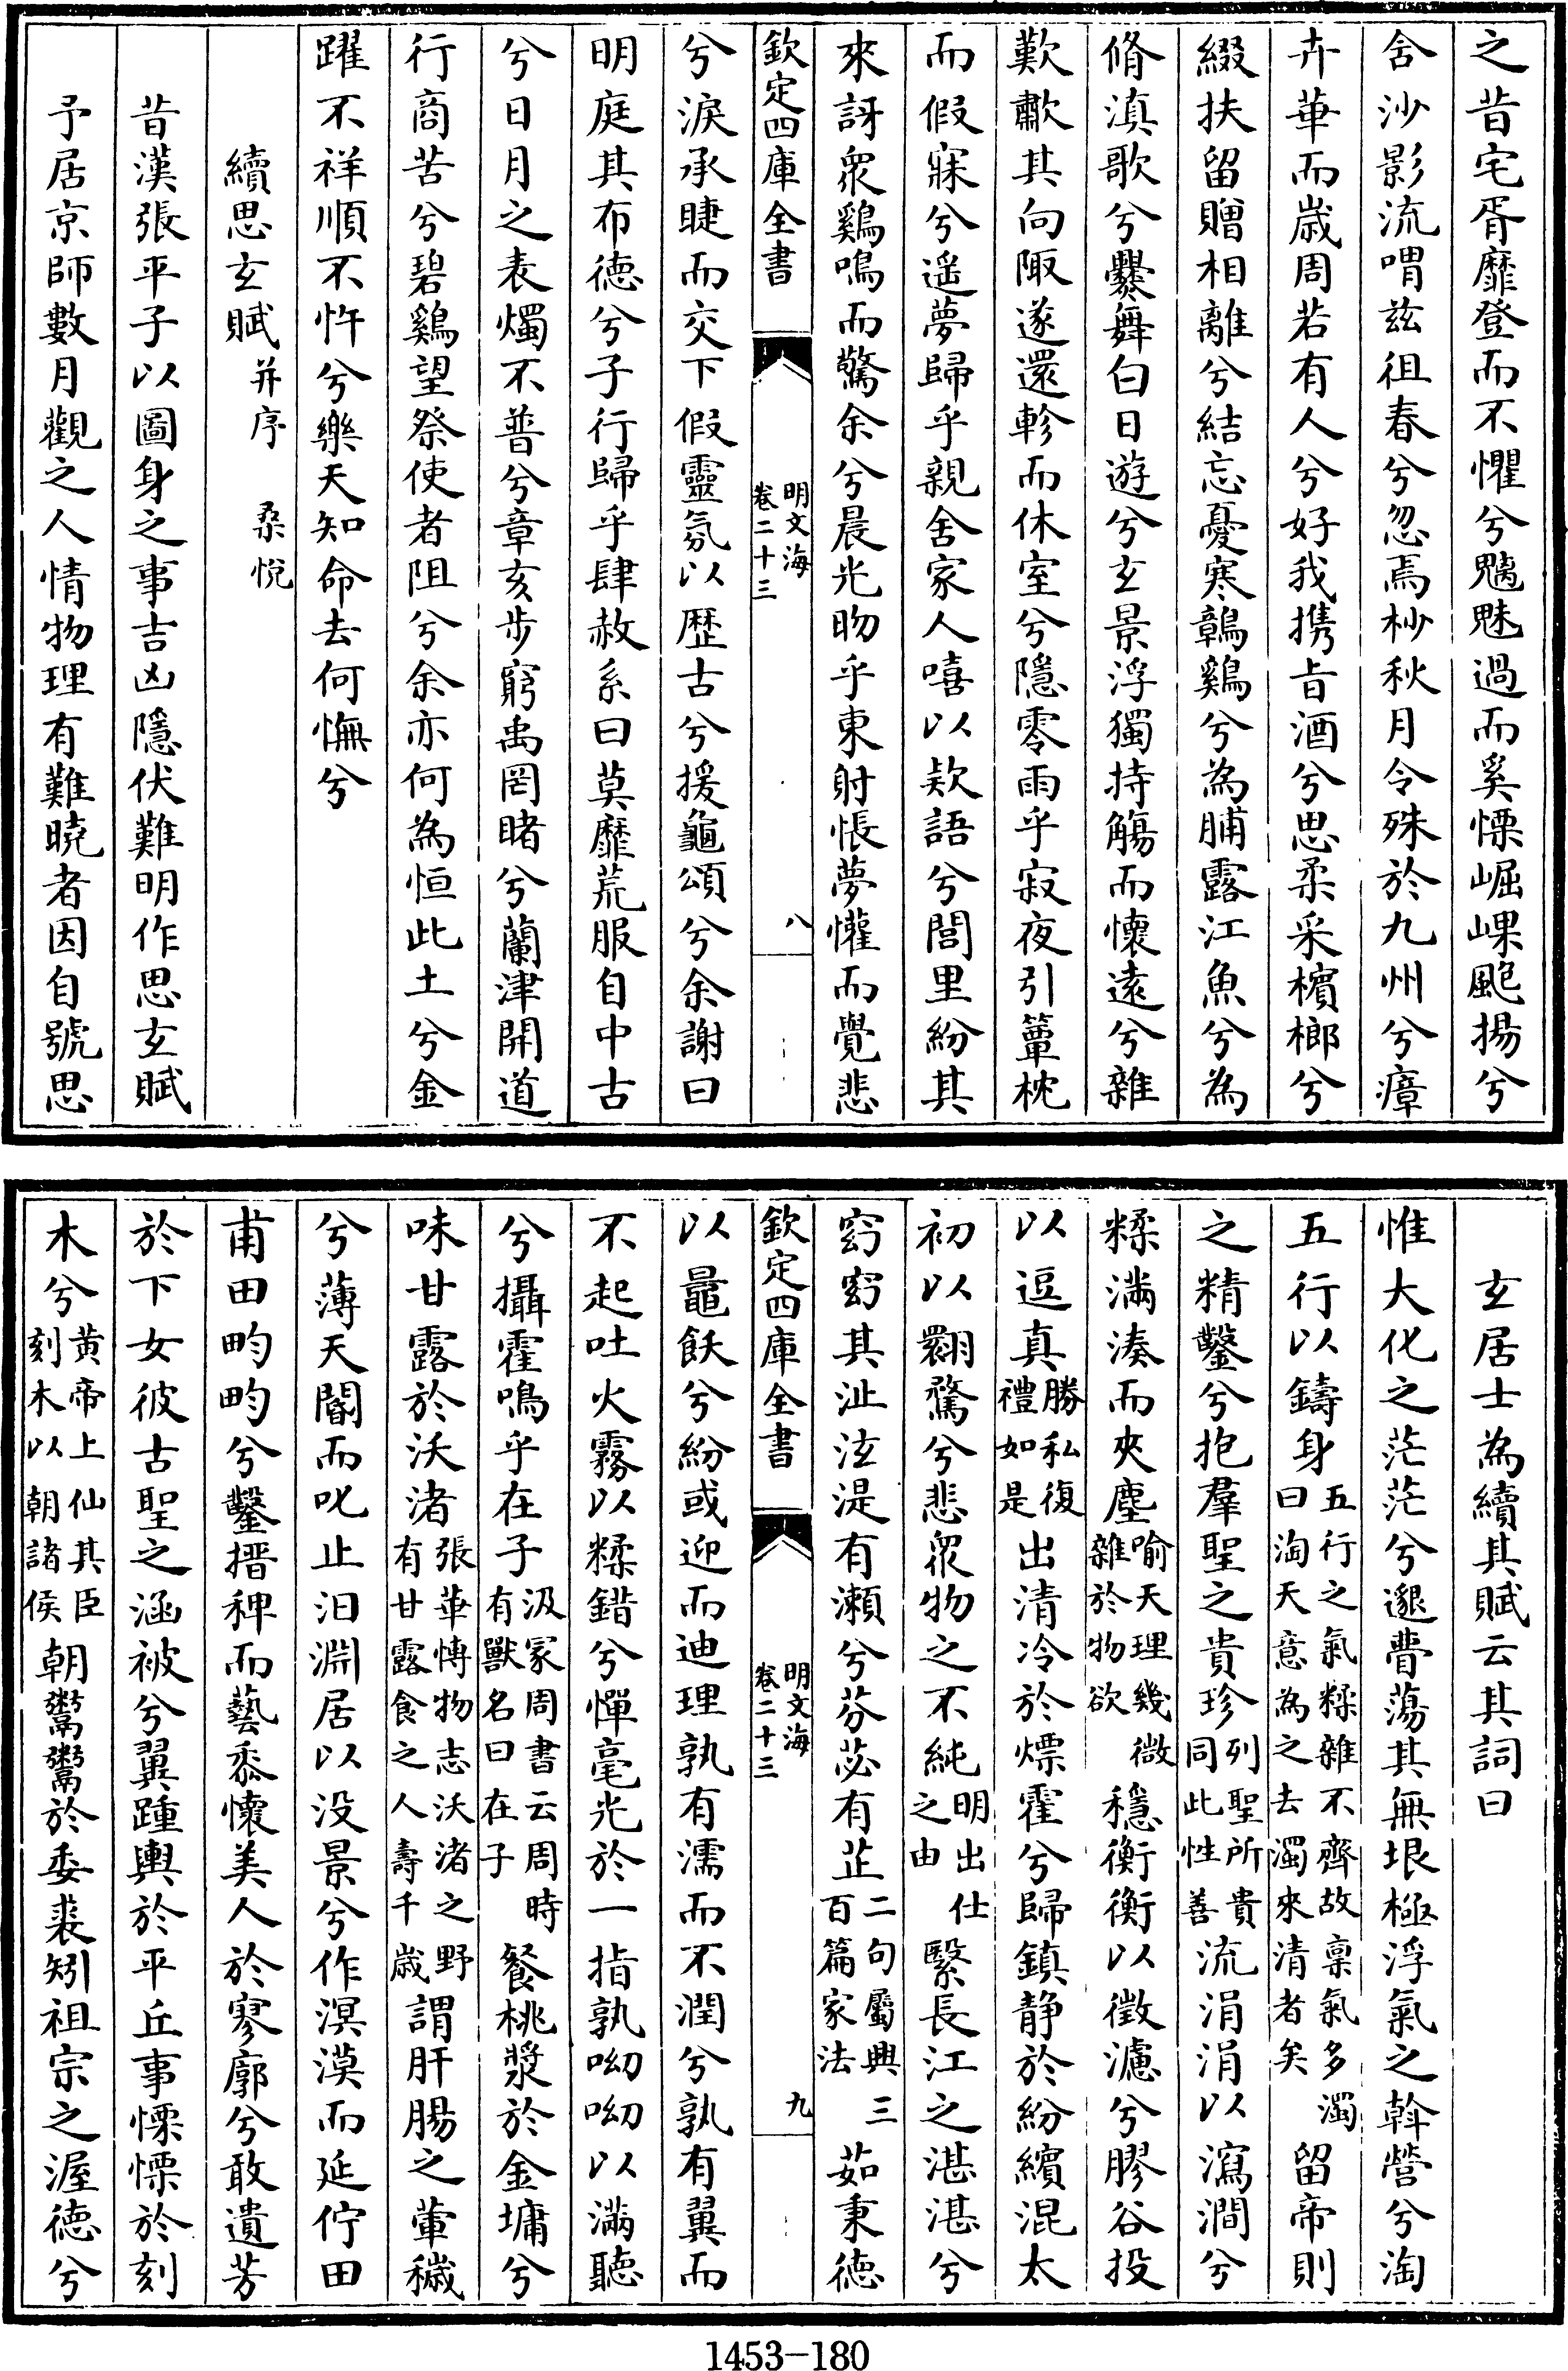 之昔宅胥靡登而不懼兮魑魅過而奚慄崛崍颮揚兮
舍沙影流喟兹徂春兮忽焉杪秋月令殊於九州兮瘴
卉華而歳周若有人兮好我携旨酒兮思柔采檳榔兮
綴扶留贈相離兮結忘憂寒鶾鷄兮為脯露江魚兮為
脩滇歌兮爨舞白日遊兮玄景浮獨持觴而懷遠兮雜
歎歗其向陬遂還軫而休室兮隱零雨乎寂夜引簟枕
而假寐兮遥夢歸乎親舍家人嘻以欵語兮閭里紛其
來訝衆鷄鳴而驚余兮晨光昒乎東射悵夢懽而覺悲
欽定四庫全書
明文海
卷二十三
八
兮淚承睫而交下假靈氛以歴古兮援龜頌兮余謝曰
明庭其布徳兮子行歸乎肆赦系曰莫靡荒服自中古
兮日月之表燭不普兮章亥歩窮禹罔睹兮蘭津開道
行商苦兮碧鷄望祭使者阻兮余亦何為恒此土兮金
躍不祥順不忤兮樂天知命去何憮兮
續思玄賦 并序 桑悦
昔漢張平子以圖身之事吉凶隱伏難明作思玄賦
予居京師數月觀之人情物理有難曉者因自號思
玄居士為續其賦云其詞曰
惟大化之茫茫兮邈瞢蕩其無垠極浮氣之斡營兮淘
五行以鑄身五行之氣糅雜不齊故禀氣多濁曰淘天意為之去濁來清者矣留帝則
之精鑿兮抱羣聖之貴珍列聖所貴同此性善流涓涓以瀉澗兮
糅滿湊而夾塵喻天理幾微雜於物欲穩衡衡以徵濾兮膠谷投
以逗真勝私復禮如是出清冷於熛霍兮歸鎮静於紛繽混太
初以翾驚兮悲衆物之不純明出仕之由緊長江之湛湛兮
窈窈其沚泫湜有瀬兮芬苾有芷二句屬興三百篇家法茹秉徳
欽定四庫全書
明文海
卷二十三
九
以鼂飫兮紛或迎而迪理孰有濡而不潤兮孰有翼而
不起吐火霧以糅錯兮憚毫光於一指孰呦呦以滿聽
兮攝霍鳴乎在子汲冢周書云周時有獸名曰在子餐桃漿於金墉兮
味甘露於沃渚張華博物志沃渚之野有甘露食之人壽千歳謂肝腸之葷穢
兮薄天閽而叱止汨淵居以没景兮作溟漠而延佇田
甫田畇畇兮鑿搢稗而藝黍懷美人於寥廓兮敢遺芳
於下女彼古聖之涵被兮翼踵輿於平丘事慄慄於刻
木兮黄帝上仙其臣刻木以朝諸侯朝鬻鬻於委裘矧祖宗之渥徳兮
1453-180